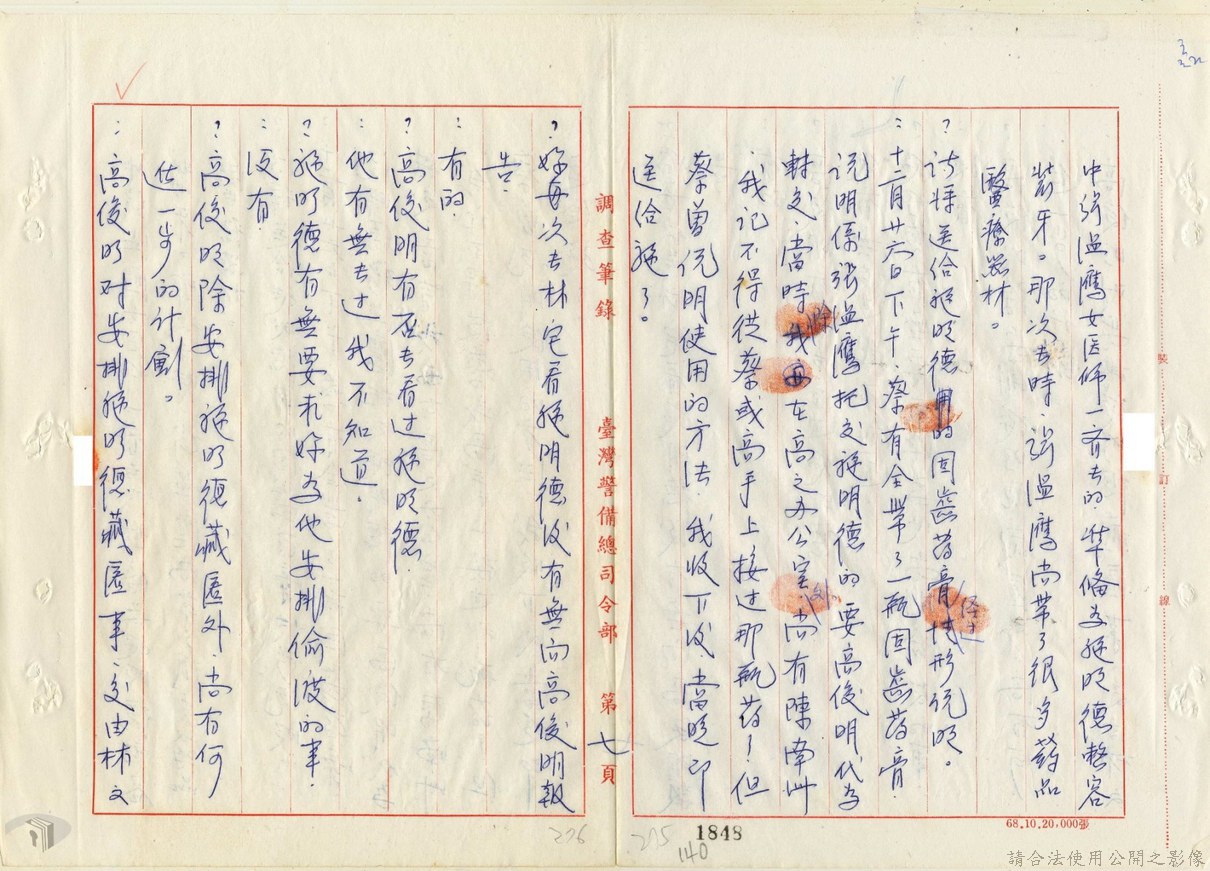 中張溫鷹女医师一齐去的,準備為施明德整容
装牙。那次去時,張溫鷹尚帶了很多药品
醫療器材。
?請將送給施明德用的固齒葯膏情形說明。
:十二月廿六日下午,蔡有全帶了一瓶固齒葯膏,
說明係張溫鷹托交施明德的,要高俊明代為
轉交,當時除我在高之办公室又尚有陳南州
我記不得從蔡或高手上接过那瓶葯了,但
蔡曾说明使用的方法,我收下後,當晚即
送给施了。
調查筆錄 臺灣警備總司令部 第七頁
?妳每次去林宅看施明德後有無向高俊明報
告.
:有的.
?高俊明有否去看过施明德.
:他有無去过我不知道.
?施明德有無要求妳為他安排偷渡的事.
:没有
?高俊明除安排施明德藏匿外尚有何
進一步的计劃。
:高俊明对安排施明德藏匿事,交由林文
68.10.20,000張
裝 訂 線
1848
140
275
276
請合法使用公開之影像